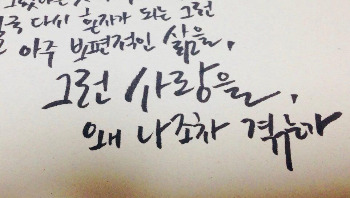 다시 혼자가 되는 그런
아주 보편적인 삶을,
그런 사랑을,
왜 나조차